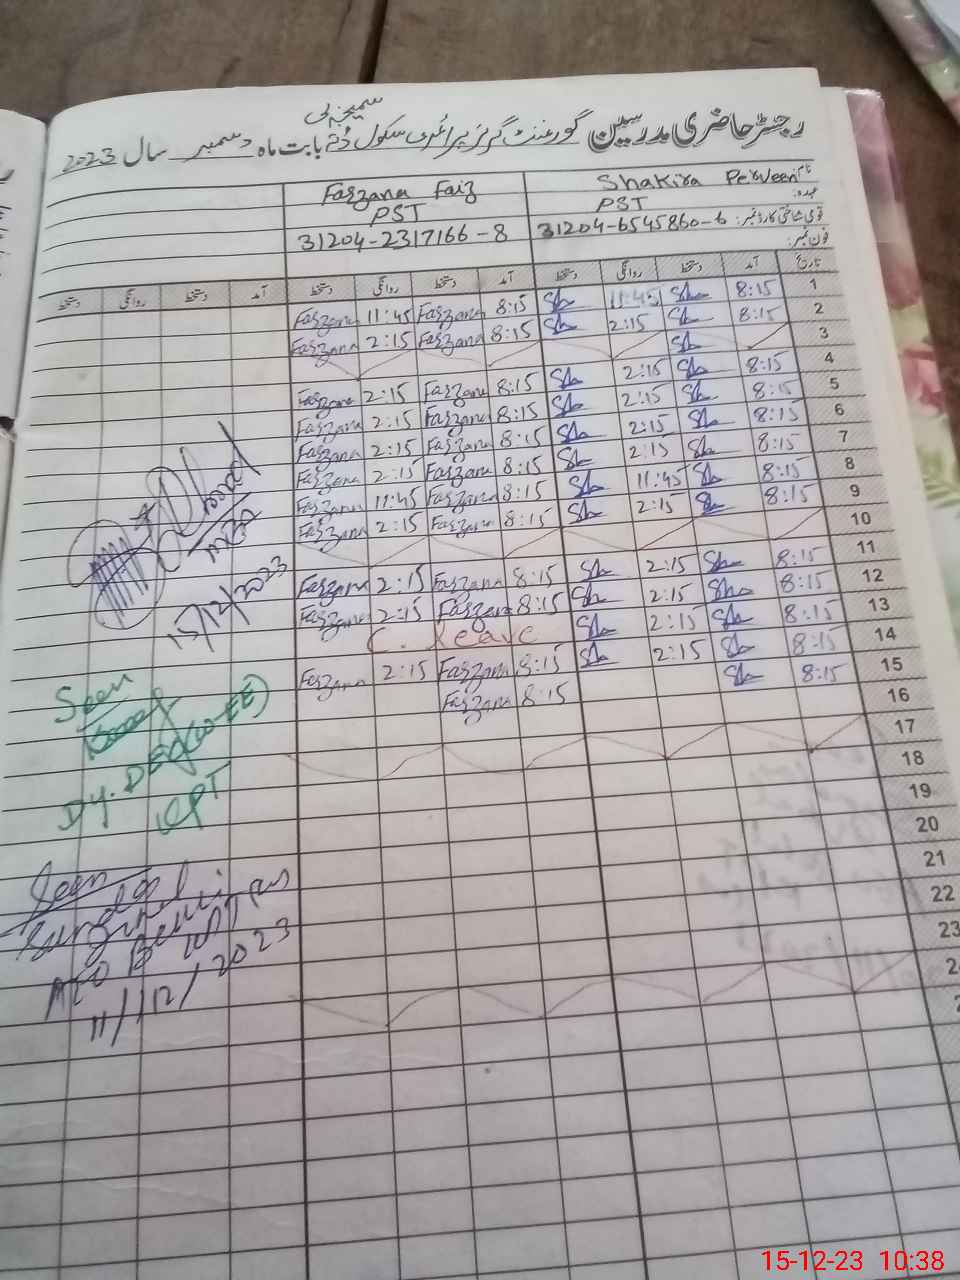 رجسٹر حاضری مدرسین گورنمنٹ گرلز پرائمری سکول بابت ماہ دسمبر سال 2023
Farzana Faiz Shakira Perveen نام
PST PST عہدہ:
31204-2317166-8 31204-6545860-6 قومی شناختی کارڈ نمبر:
فون نمبر:
دستخط روانگی دستخط آمد دستخط روانگی دستخط آمد دستخط روانگی دستخط آمد تاریخ
Farzana 11:45 Farzana 8:15 Sha 11:45 Sha 8:15 1
Farzana 2:15 Farzana 8:15 Sha 2:15 Sha 8:15 2
Sha 3
Farzana 2:15 Farzana 8:15 Sha 2:15 Sha 8:15 4
Farzana 2:15 Farzana 8:15 Sha 2:15 Sha 8:15 5
Farzana 2:15 Farzana 8:15 Sha 2:15 Sha 8:15 6
Farzana 2:15 Farzana 8:15 Sha 2:15 Sha 8:15 7
Farzana 11:45 Farzana 8:15 Sha 11:45 Sha 8:15 8
Farzana 2:15 Farzana 8:15 Sha 2:15 Sha 8:15 9
10
Farzana 2:15 Farzana 8:15 Sha 2:15 Sha 8:15 11
Farzana 2:15 Farzana 8:15 Sha 2:15 Sha 8:15 12
C. Leave Sha 2:15 Sha 8:15 13
Farzana 2:15 Farzana 8:15 Sha 2:15 Sha 8:15 14
Farzana 8:15 Sha 8:15 15
16
17
18
19
20
21
22
23
24
15/12/2023
Seen
Dy. DEO (W-EE)
KPT
Seen
AEO
11/12/2023
15-12-23 10:38